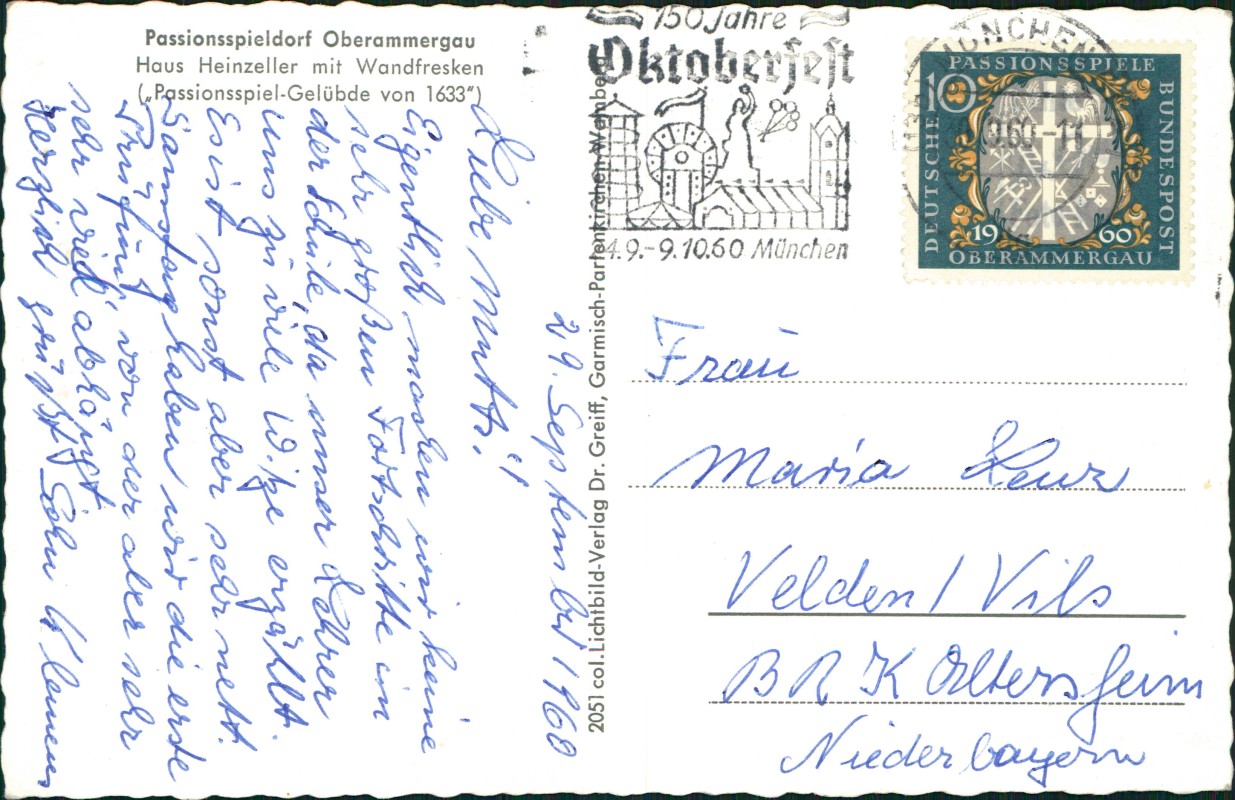 Passionsspieldorf Oberammergau
Haus Heinzeller mit Wandfresken
(„Passionsspiel-Gelübde von 1633“)
29. September 1960
Liebe Mutti!
Eigentlich machen wir keine
sehr großen Fortschritte in
der Schule, da unser Lehrer
uns zu viele Witze erzählt.
Es ist sonst aber sehr nett.
Samstag haben wir die erste
Prüfung, von der aber sehr
sehr viel abhängt.
Herzlich grüßt Sohn Klemens
2051 col. Lichtbild-Verlag Dr. Greiff, Garmisch-Partenkirchen-Wamberg
150 Jahre
Oktoberfest
4.9.-9.10.60 München
MÜNCHEN
9.60-11
PASSIONSSPIELE
10
DEUTSCHE
BUNDESPOST
1960
OBERAMMERGAU
Frau
Maria Lenz
Velden/Vils
BRK Altersheim
Niederbayern